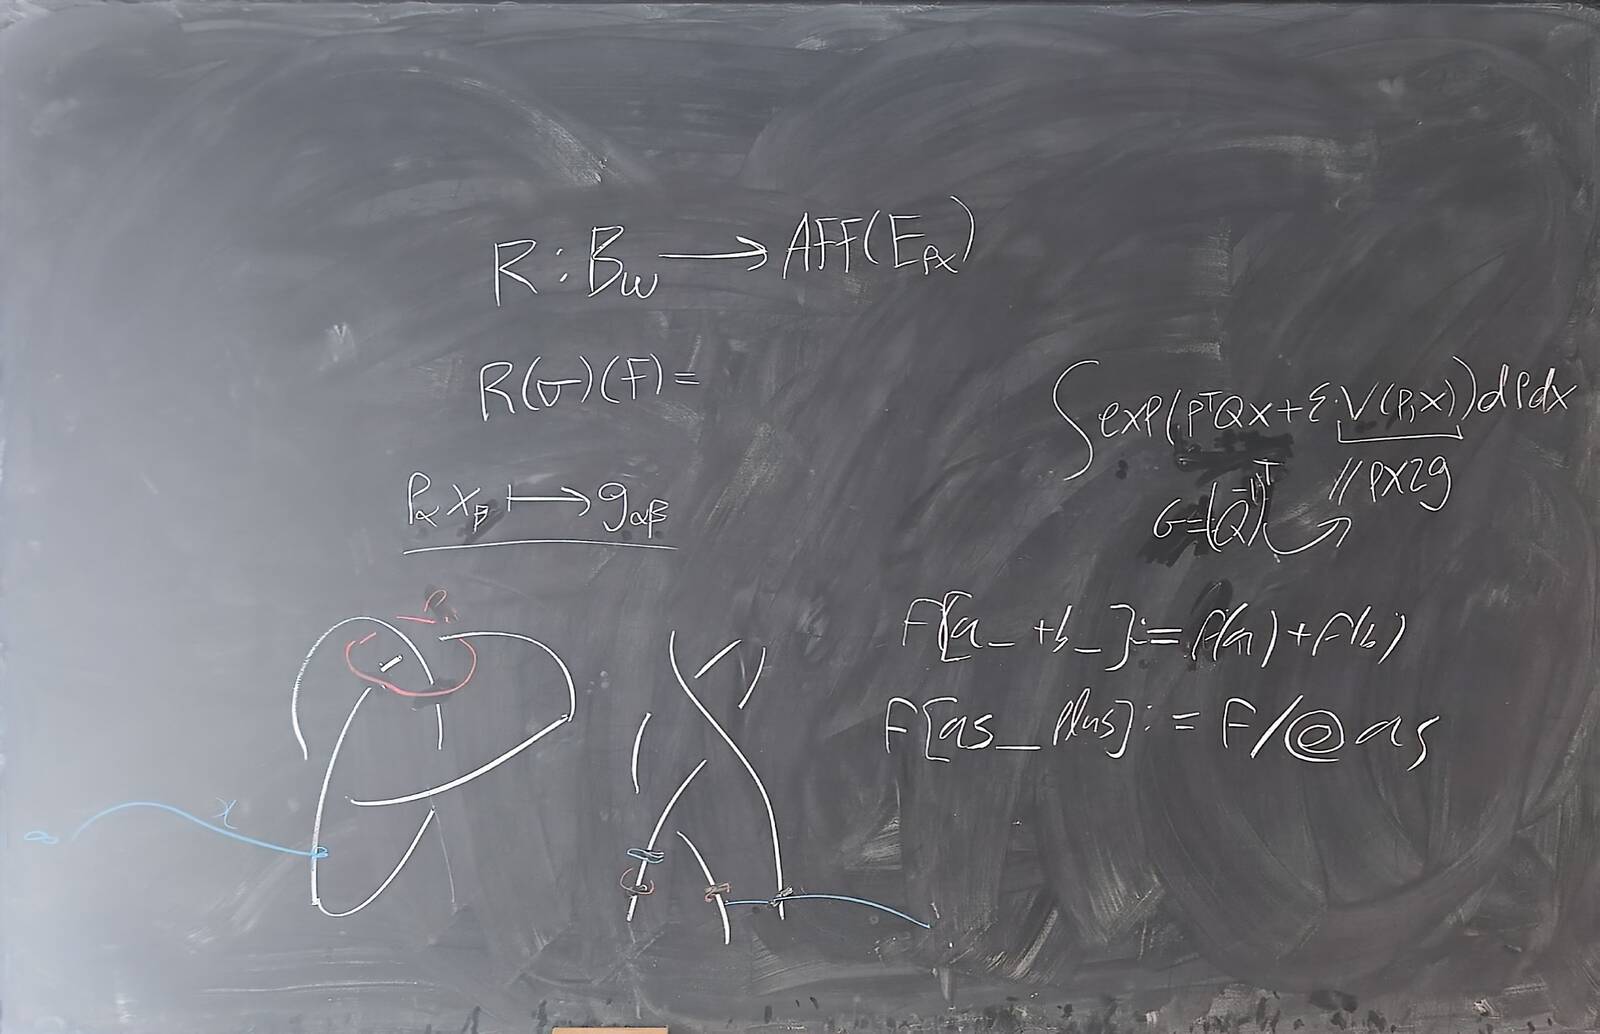 R : B_w → AFF(E_Pα)
R(σ)(F) =
∫ exp(P^T Q x + ε·V(P,x)) dP dx
P_α x_β ↦ g_αβ
// PX2g
G = (Q^-1)^T
F[a_ + b_] := F(a) + F(b)
F[as_Plus] := F/@ as
x